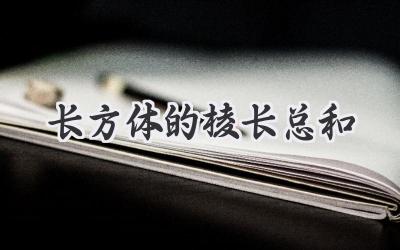 长方体的棱长总和